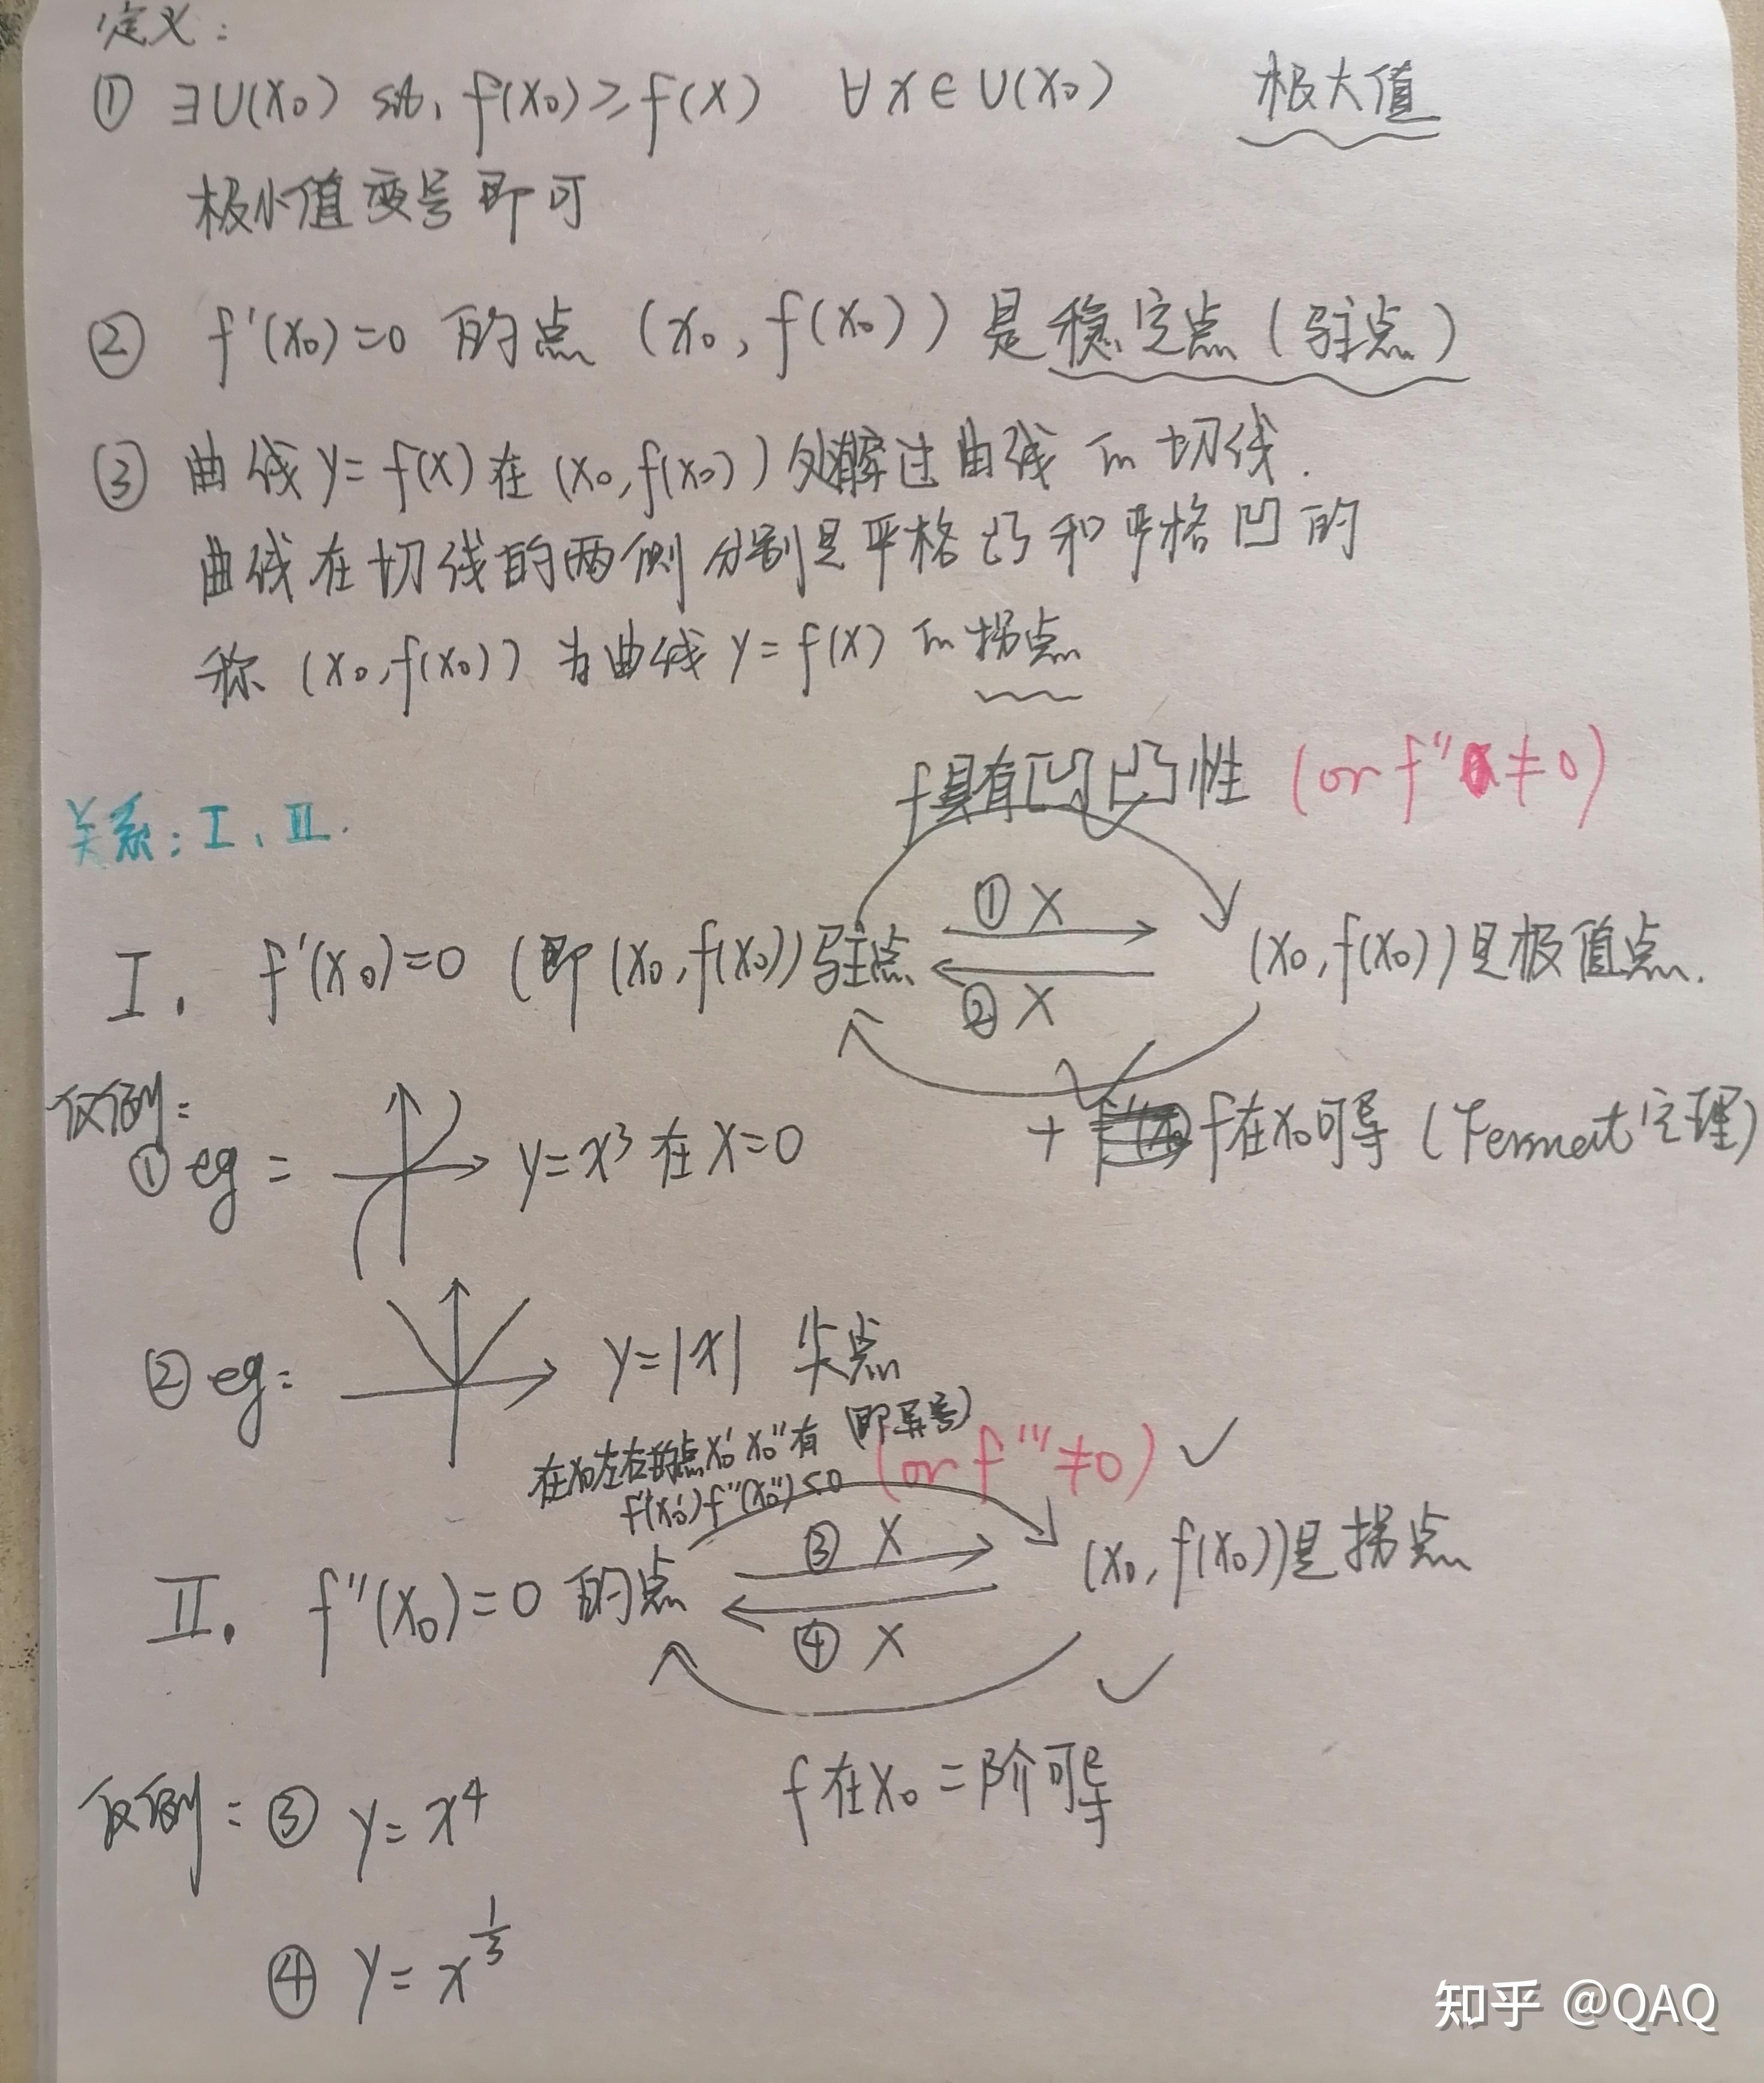 定义：
① ∃U(x₀) s.t. f(x₀)≥f(x) ∀x∈U(x₀) 极大值
极小值变号即可
② f'(x₀)=0 的点 (x₀, f(x₀)) 是稳定点(驻点)
③ 曲线 y=f(x) 在 (x₀, f(x₀)) 处 过曲线的切线.
曲线在切线的两侧分别是严格凸和严格凹的
称 (x₀, f(x₀)) 为曲线 y=f(x) 的拐点
f具有凹凸性 (or f''≠0)
关系：I、II.
① X
I. f'(x₀)=0 (即(x₀, f(x₀))驻点 (x₀, f(x₀))是极值点.
② X
+ f在x₀可导 (Fermat定理)
反例：
① eg: y=x³ 在 x=0
② eg: y=|x| 尖点
在x₀左右的点x₀' x₀''有 (即异号)
f''(x₀')f''(x₀'')<0 (or f'''≠0) ✓
③ X
II. f''(x₀)=0 的点 (x₀, f(x₀))是拐点
④ X
✓
f在x₀二阶可导
反例：③ y=x⁴
④ y=x^{1/3}
知乎 @QAQ